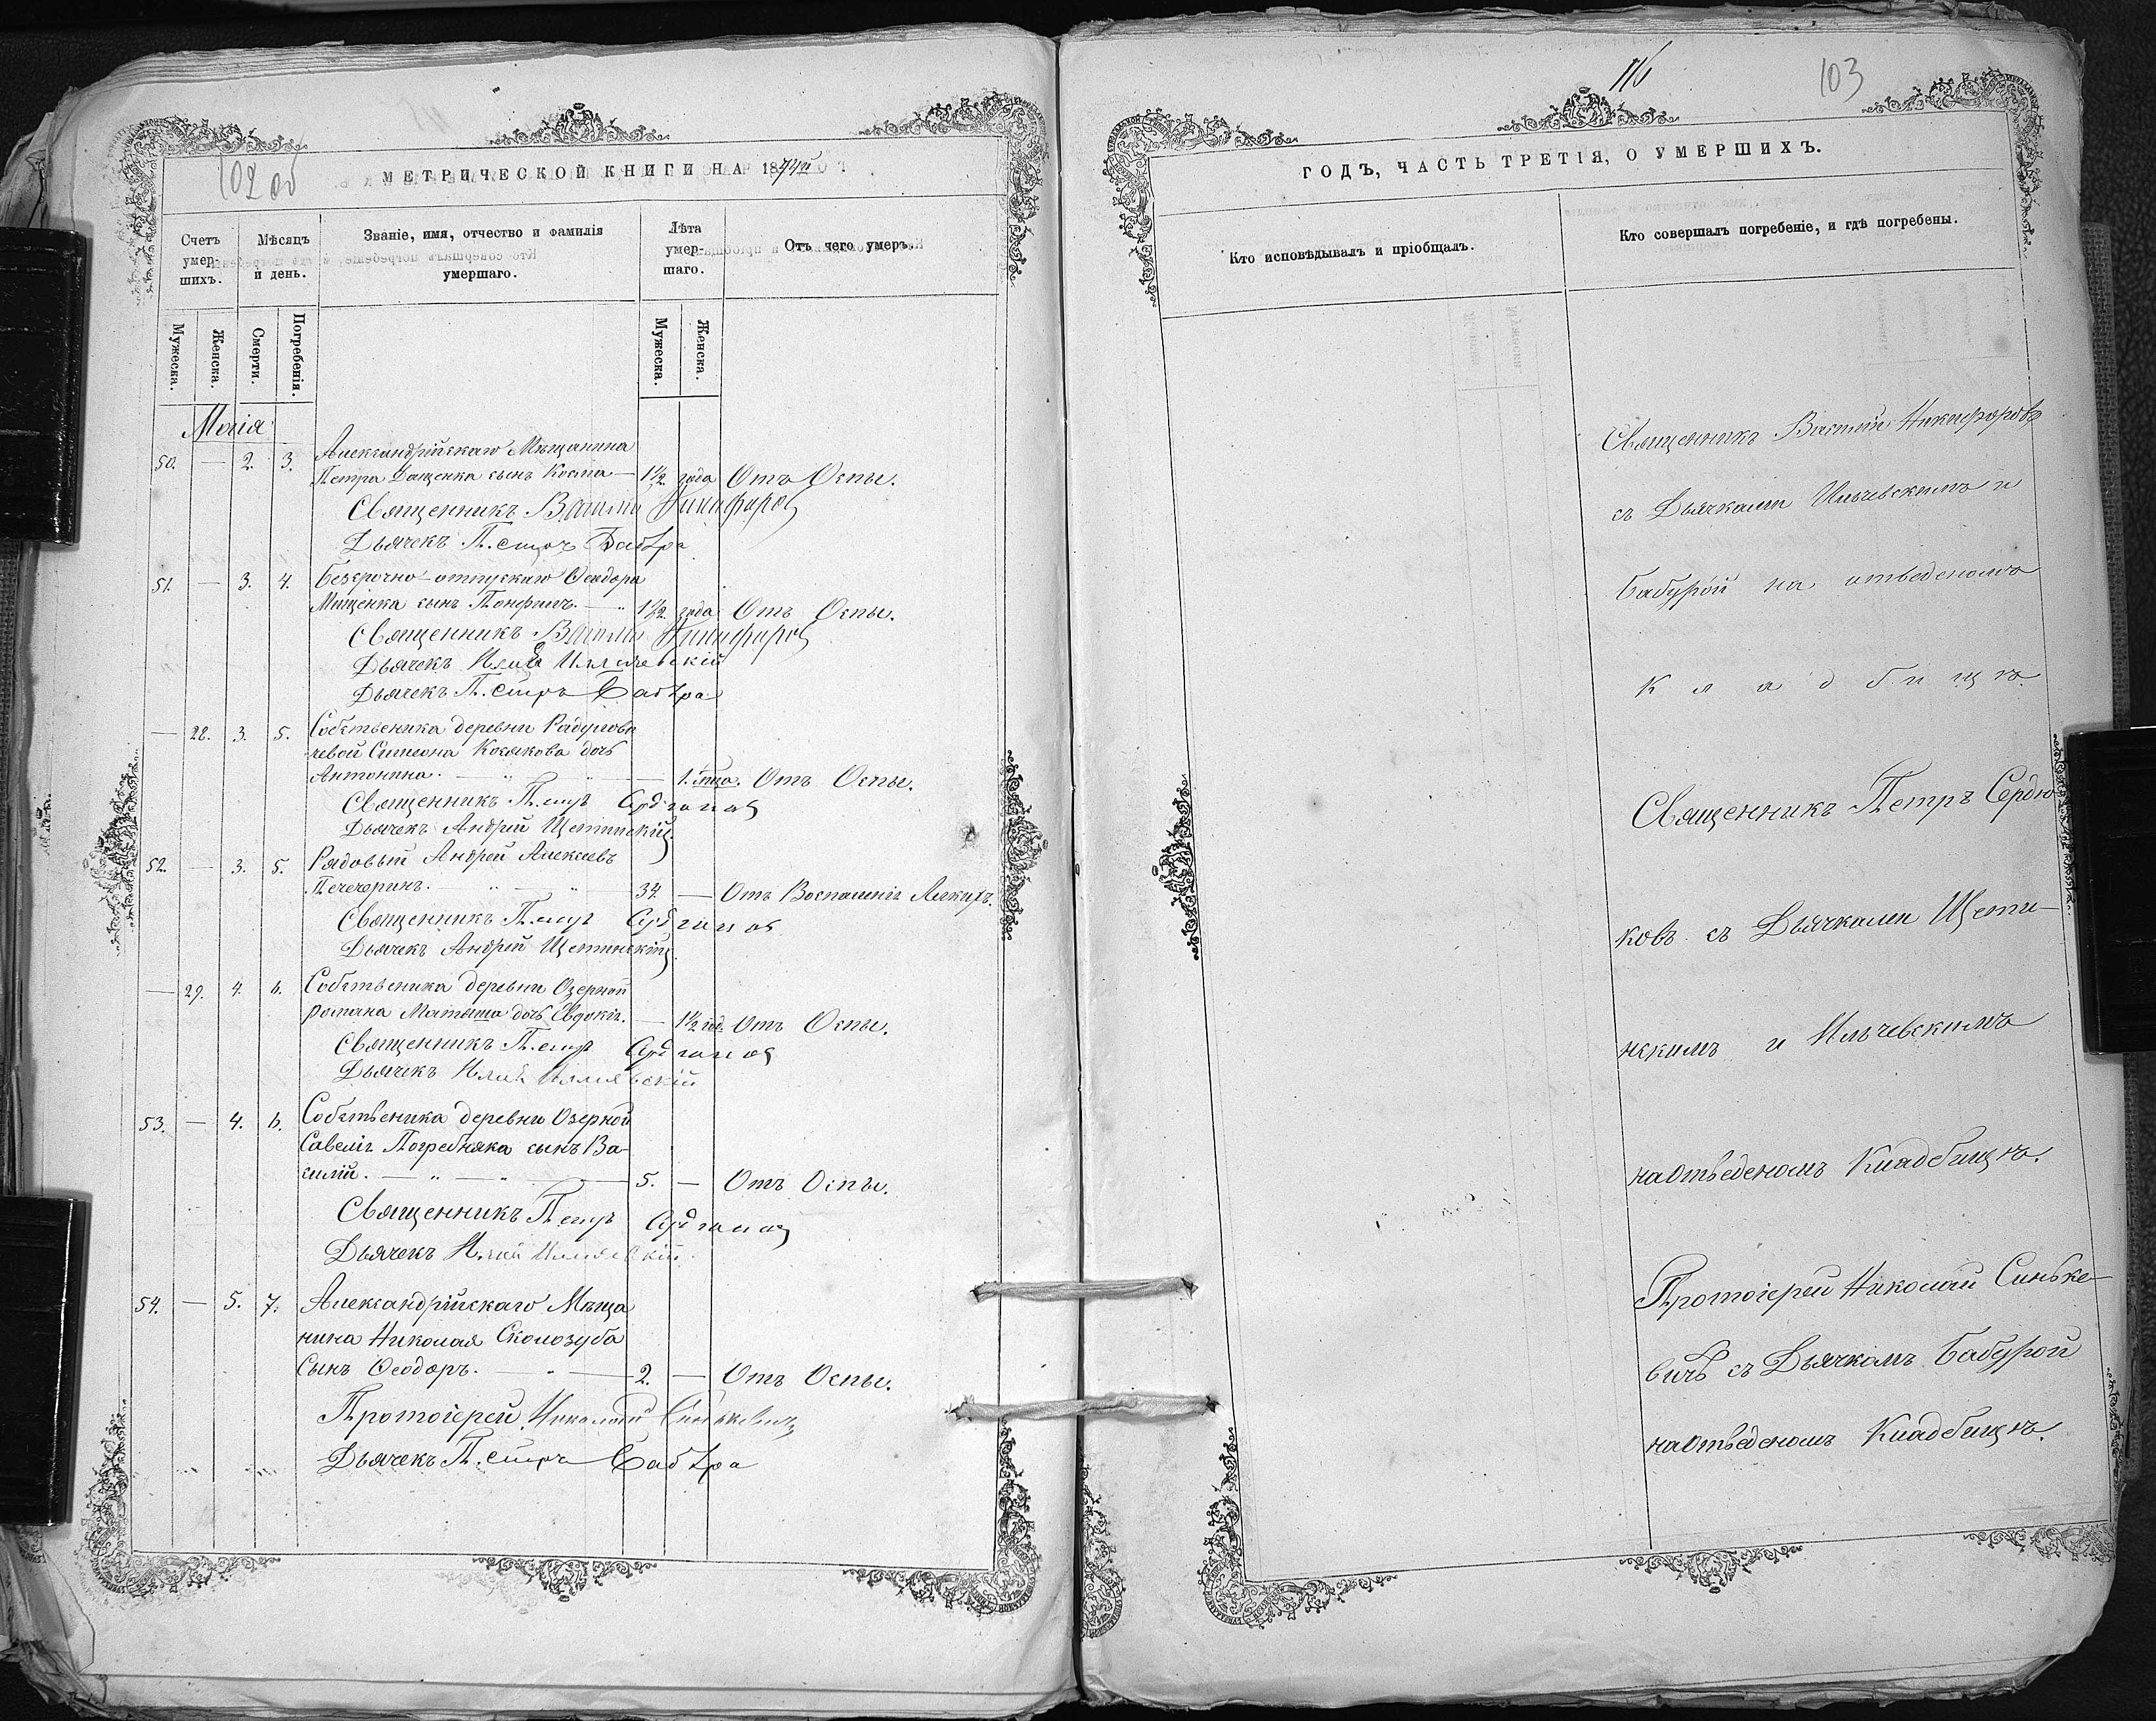 102 об
МЕТРИЧЕСКОЙ КНИГИ НА 1874й
Счетъ умер-шихъ.
Мѣсяцъ и день.
Званіе, имя, отчество и фамилія умершаго.
Лѣта умер-шаго.
Отъ чего умеръ.
Мужеска. Женска. Смерти. Погребенія. Мужеска. Женска.
Маія
Александрійскаго Мѣщанина
50. — 2. 3. Петра Даценка сынъ Косма — 1½ года Отъ Оспы.
Священникъ Василій Никифоровъ
Дьячекъ Петръ Бабура
51. — 3. 4. Безсрочно-отпускнаго Ѳеодора
Мищенка сынъ — 1½ года Отъ Оспы.
Священникъ Василій Никифоровъ
Дьячекъ Илія Ильчевскій
Дьячекъ Петръ Бабура
— 28. 3. 5. Собственика деревни
Симеона Косякова дочь
Антонина. — 1. года. Отъ Оспы.
Священникъ Петръ Сердюковъ
Дьячекъ Андрей Щетинскій
52. — 3. 5. Рядовый Андрей Алексѣевъ
Печегоринъ. — 34. — Отъ Воспаленія Легкихъ.
Священникъ Петръ Сердюковъ
Дьячекъ Андрей Щетинскій
— 29. 4. 6. Собственика деревни Озерной
Романа Матыша дочь Евдокія. — 1½ год. Отъ Оспы.
Священникъ Петръ Сердюковъ
Дьячекъ Илія Ильчевскій
53. — 4. 6. Собственика деревни Озерной
Савелія Погребняка сынъ Ва-
силій. — 5. — Отъ Оспы.
Священникъ Петръ Сердюковъ
Дьячекъ Илія Ильчевскій
54. — 5. 7. Александрійскаго Мѣща
нина Николая Сколозуба
Сынъ Ѳеодоръ. — 2. — Отъ Оспы.
Протоіерей Николай Синькевичъ
Дьячекъ Петръ Бабура
116
103
ГОДЪ, ЧАСТЬ ТРЕТІЯ, О УМЕРШИХЪ.
Кто исповѣдывалъ и пріобщалъ.
Кто совершалъ погребеніе, и гдѣ погребены.
Священникъ Василій Никифоровъ
съ Дьячками Ильчевскимъ и
Бабурой на отведеномъ
Кладбищѣ
Священникъ Петръ Сердю
ковъ съ Дьячками Щети-
нскимъ и Ильчевскимъ
на Отведеномъ Кладбищѣ.
Протоіерей Николай Синьке-
вичъ съ Дьячкомъ Бабурой
на Отведеномъ Кладбищѣ.